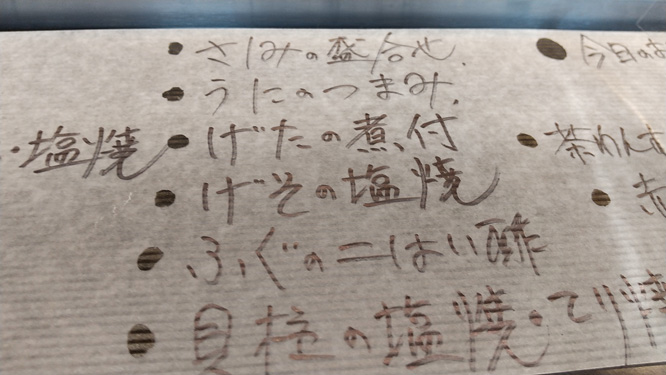 ● さしみの盛合せ. ● 今日のお
● うにのつまみ.
・塩焼 ● げたの煮付 ● 茶わんむ
● げその塩焼 ● 赤
● ふぐの二はい酢
● 貝柱の塩焼・てり焼